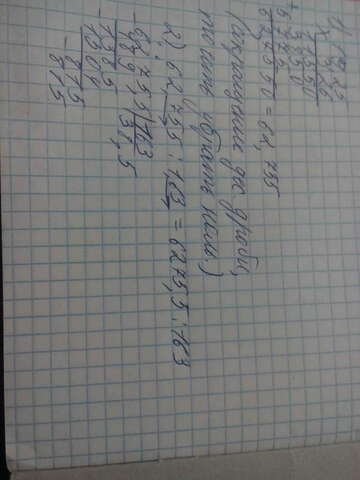 1) 19,25
× 3,26
11550
+ 3850
5775
627550 = 62,755
(сокращение дес. дроби,
тоесть убрать ноль.)
2) 62,755 : 1,63 = 6275,5 : 163
- 6275,5 | 163
489 38,5
- 1385
1304
- 815
815